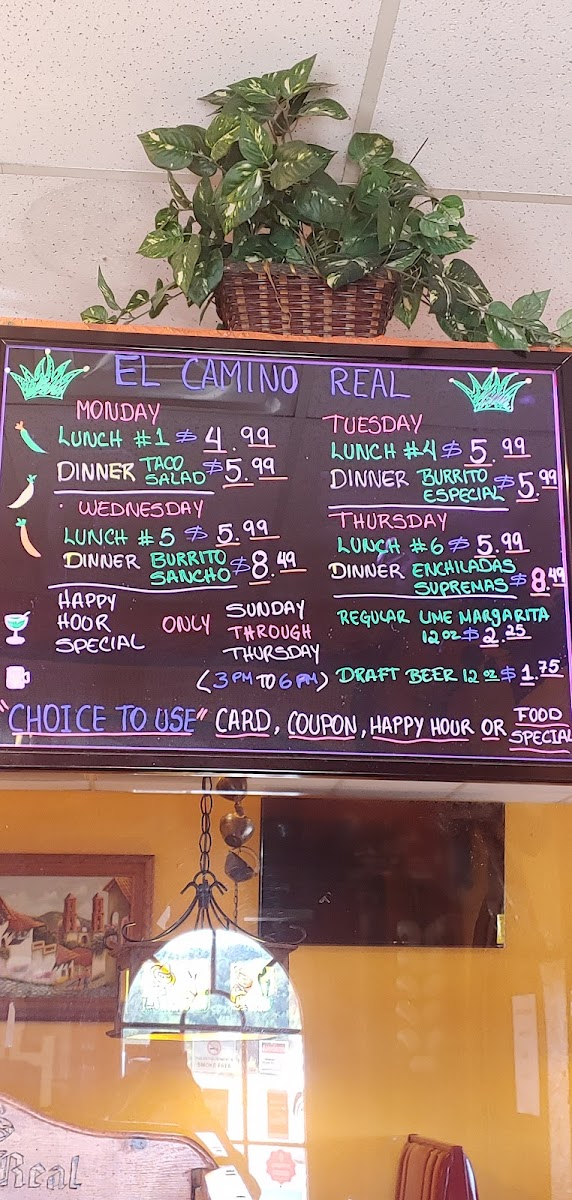 EL CAMINO REAL
MONDAY
LUNCH #1 $ 4.99
DINNER TACO SALAD $5.99
TUESDAY
LUNCH #4 $ 5.99
DINNER BURRITO ESPECIAL $5.99
WEDNESDAY
LUNCH #5 $ 5.99
DINNER BURRITO SANCHO $8.49
THURSDAY
LUNCH #6 $ 5.99
DINNER ENCHILADAS SUPREMAS $8.49
HAPPY
HOOR
SPECIAL
ONLY
SUNDAY
THROUGH
THURSDAY
(3 PM TO 6 PM)
REGULAR LIME MARGARITA
12 oz $ 2.25
DRAFT BEER 12 oz $ 1.75
"CHOICE TO USE" CARD, COUPON, HAPPY HOUR OR FOOD SPECIAL
SMOKE FREE
Real